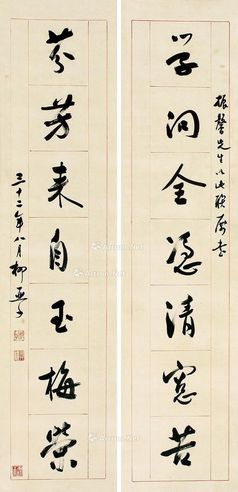 振声先生以此联属书
学问全凭清窗苦
芬芳来自玉梅荣
三十二年八月柳亚子